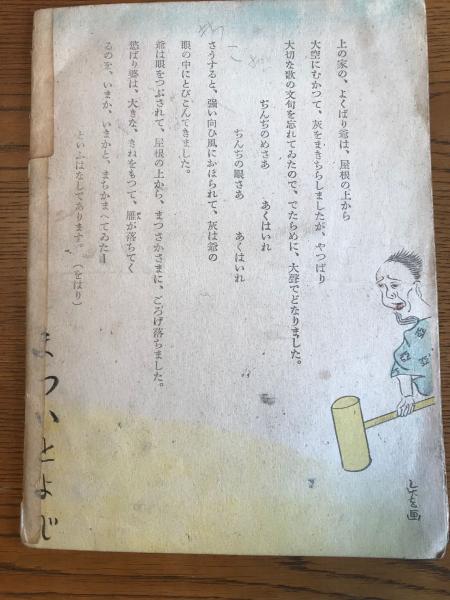 上の家の、よくばり爺は、屋根の上から
大空にむかつて、灰をまきちらしましたが、やつぱり
大切な歌の文句を忘れてゐたので、でたらめに、大聲でどなりました。
ぢんぢのめさあ　あくはいれ
ぢんぢの眼さあ　あくはいれ
さうすると、強い向ひ風にあほられて、灰は爺の
眼の中にとびこんできました。
爺は眼をつぶされて、屋根の上から、まつさかさまに、ころげ落ちました。
慾ばり婆は、大きな、きねをもつて、雁が落ちてく
るのを、いまか、いまかと、まちかまへてゐた―
といふはなしであります。（をはり）
まついとよじ